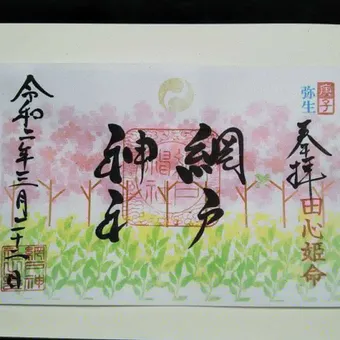 庚子
弥生
奉拝
田心姫命
網戸
神社
令和二年三月二十一日